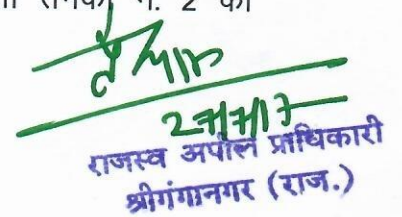 नं. 2 की
27/7/17
राजस्व अपील प्राधिकारी
श्रीगंगानगर (राज.)